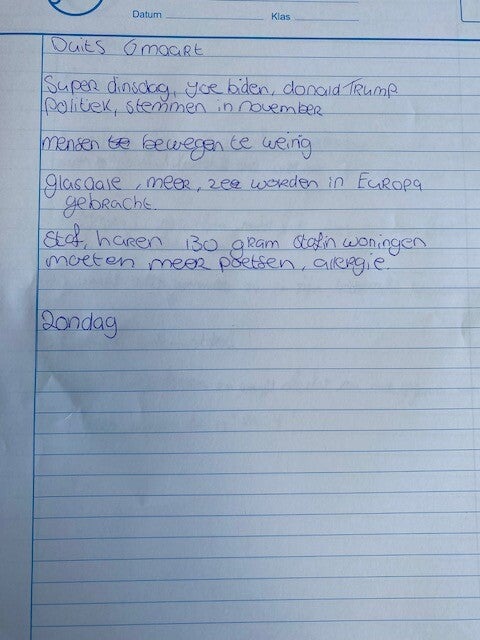 Datum
Klas
Duits 6 maart
Super dinsdag, yoe biden, donald TRUMP
politiek, stemmen in november
mensen te bewegen te weinig
glasaale, meer, zee worden in Europa
gebracht.
Stof, haren 130 gram stof in woningen
moeten meer poetsen, alergie.
Zondag